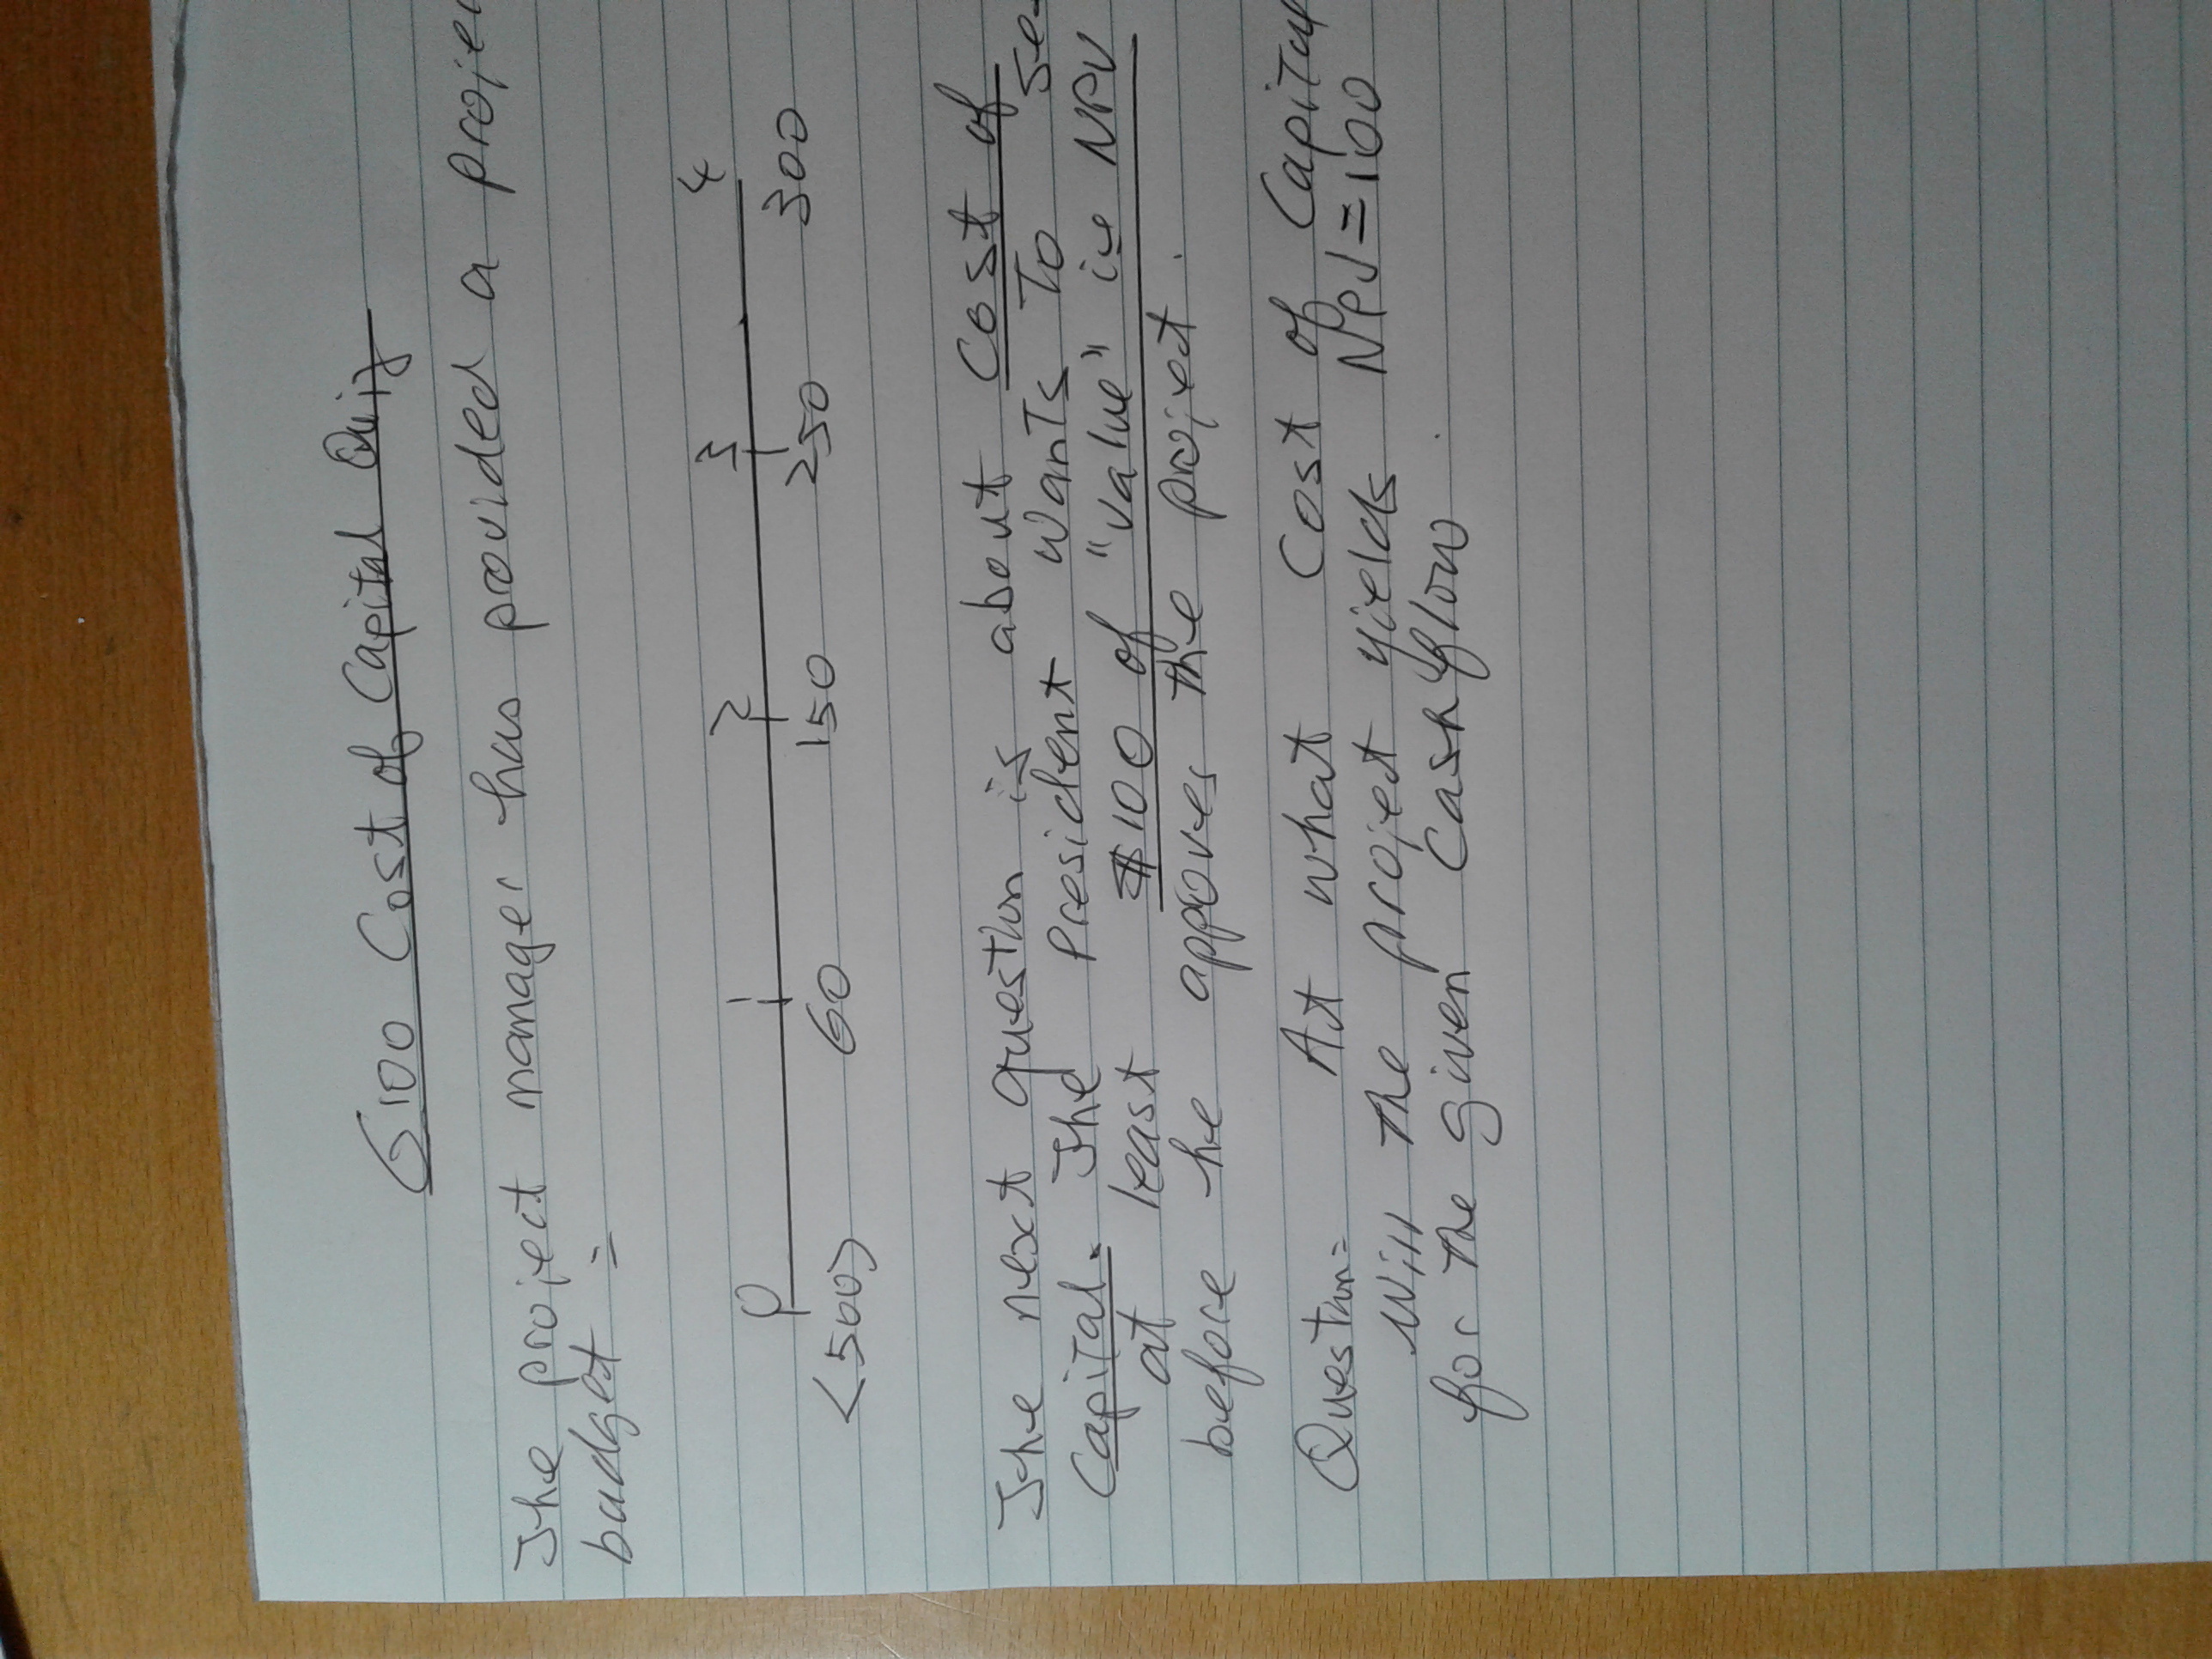 G100 Cost of Capital Quiz
The project manager has provided a
budget =
0 1 2 3 4
<500> 60 150 250 300
The next question is about Cost of
Capital. The President wants to
at least $100 of "value" ie NPV
before he approves the project.
Question= At what Cost of Capital
will the project yields NPV=100
for the given Cashflow.